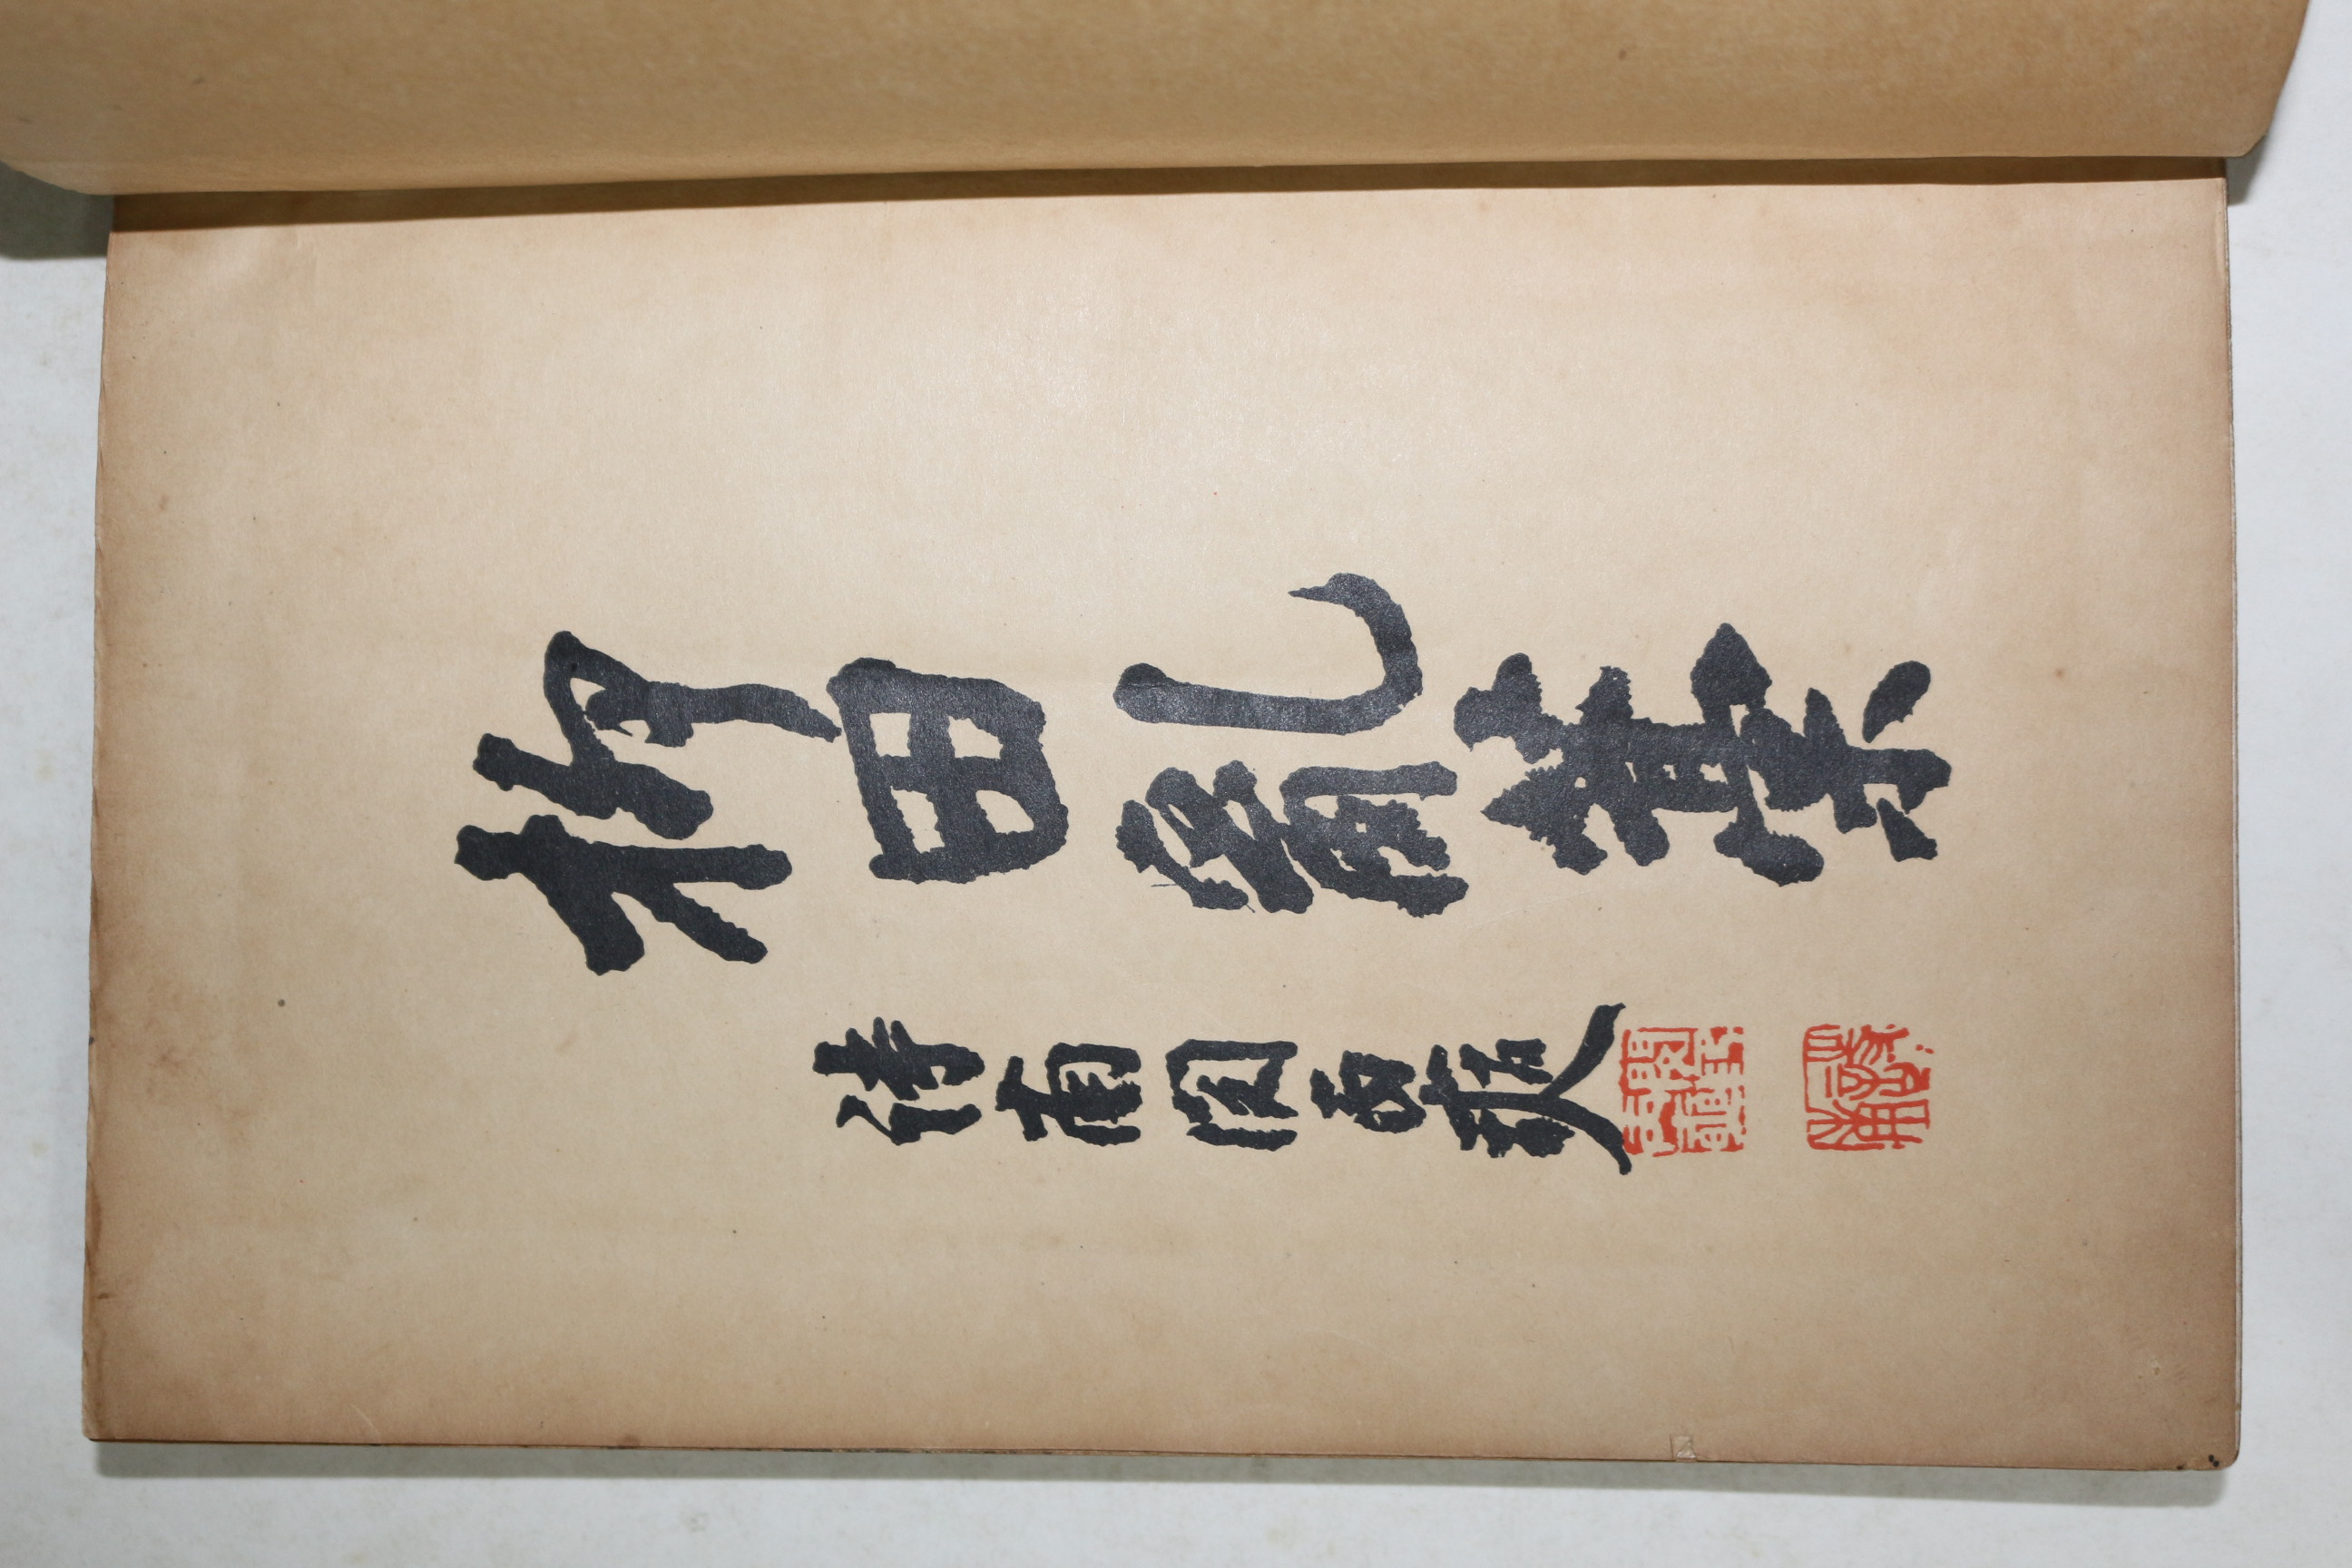 柳田亂藁
詩南閔丙奭
閔印丙奭